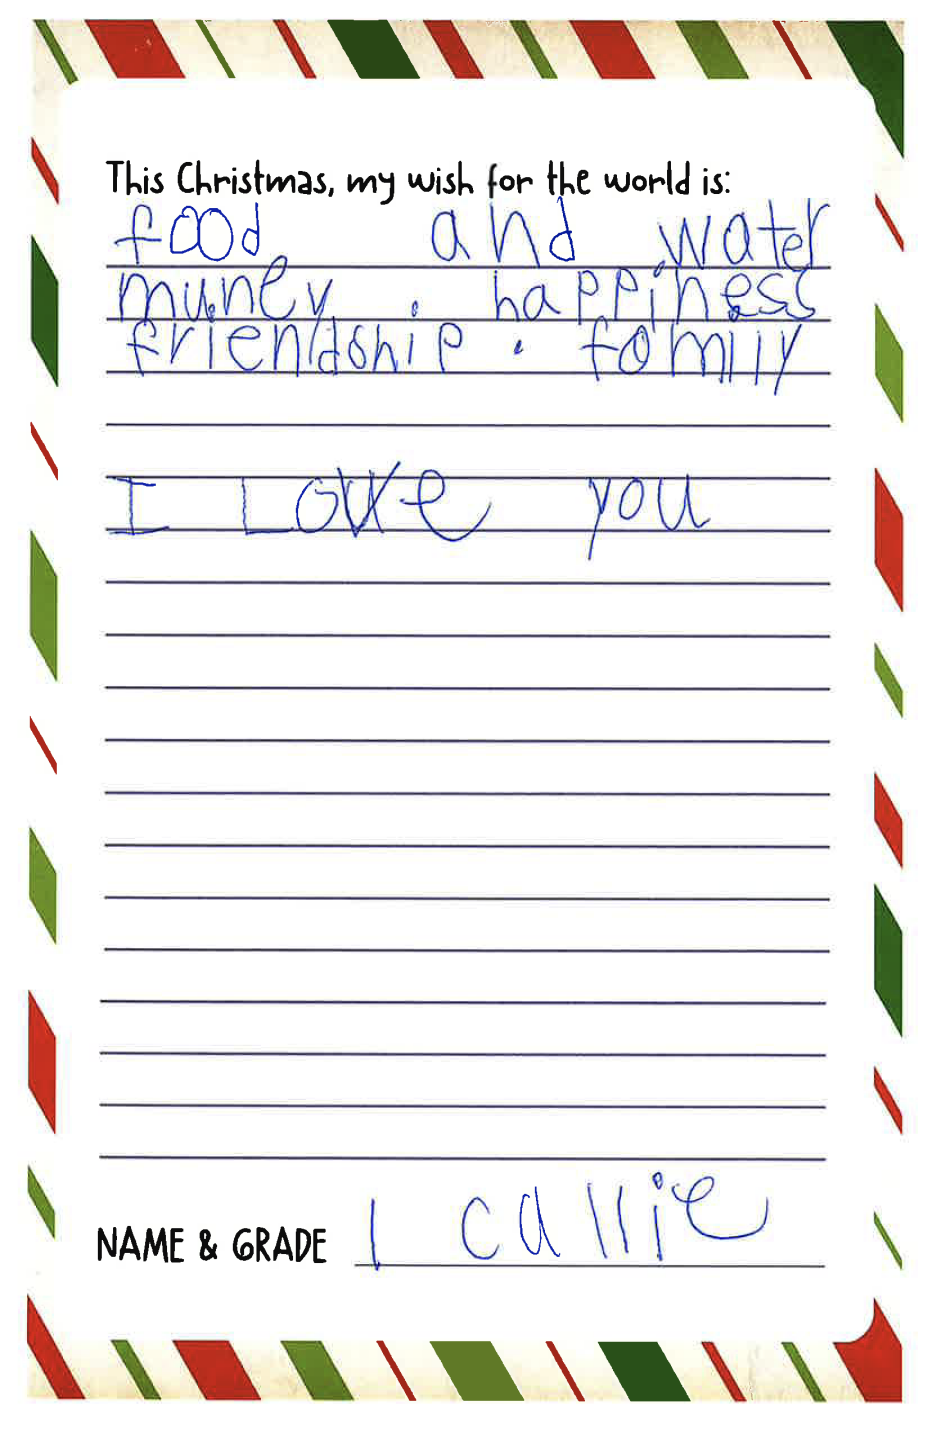 This Christmas, my wish for the world is:
food and water
muney . happiness
friendship . family
I Love you
NAME & GRADE 1 callie